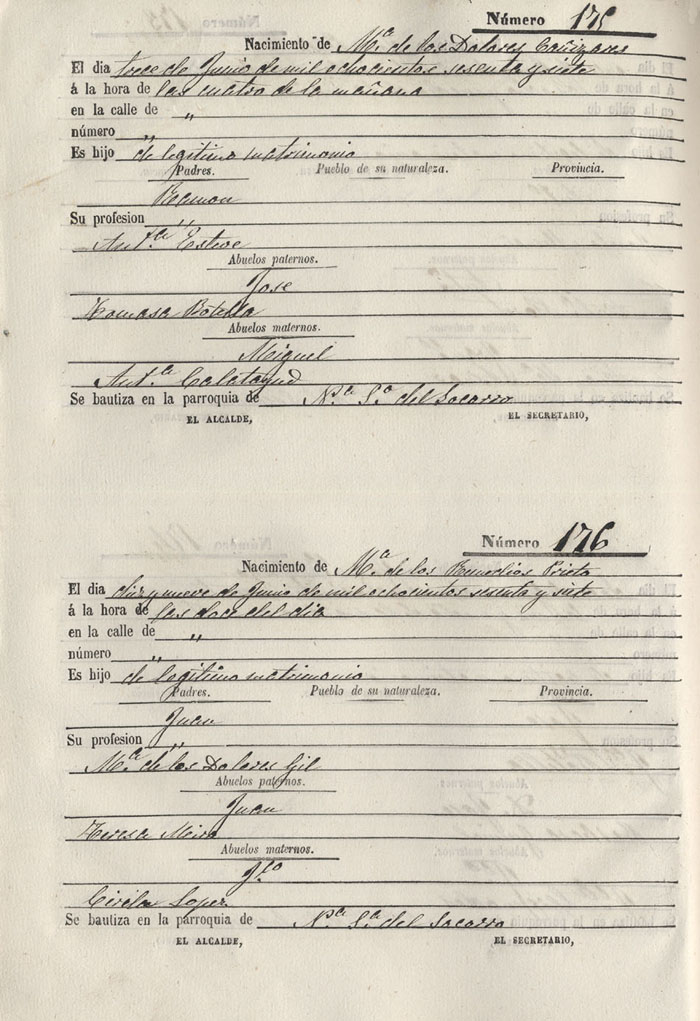 Número 175
Nacimiento de Mª de los Dolores Cañizares
El dia trece de Junio de mil ochocientos sesenta y siete
á la hora de las cuatro de la mañana
en la calle de „
número „
Es hijo de legitimo matrimonio
Padres. Pueblo de su naturaleza. Provincia.
Ramon
Su profesion „
Antª Esteve
Abuelos paternos.
Jose
Tomasa Botella
Abuelos maternos.
Miguel
Antª Calatayud
Se bautiza en la parroquia de Nª Sª del Socorro
EL ALCALDE, EL SECRETARIO,
Número 176
Nacimiento de Mª de los Remedios Prieto
El dia diez y nueve de Junio de mil ochocientos sesenta y siete
á la hora de las doce del dia
en la calle de „
número „
Es hijo de legitimo matrimonio
Padres. Pueblo de su naturaleza. Provincia.
Juan
Su profesion „
Mª de los Dolores Gil
Abuelos paternos.
Juan
Teresa Miro
Abuelos maternos.
Jº
Lopez
Se bautiza en la parroquia de Nª Sª del Socorro
EL ALCALDE, EL SECRETARIO,